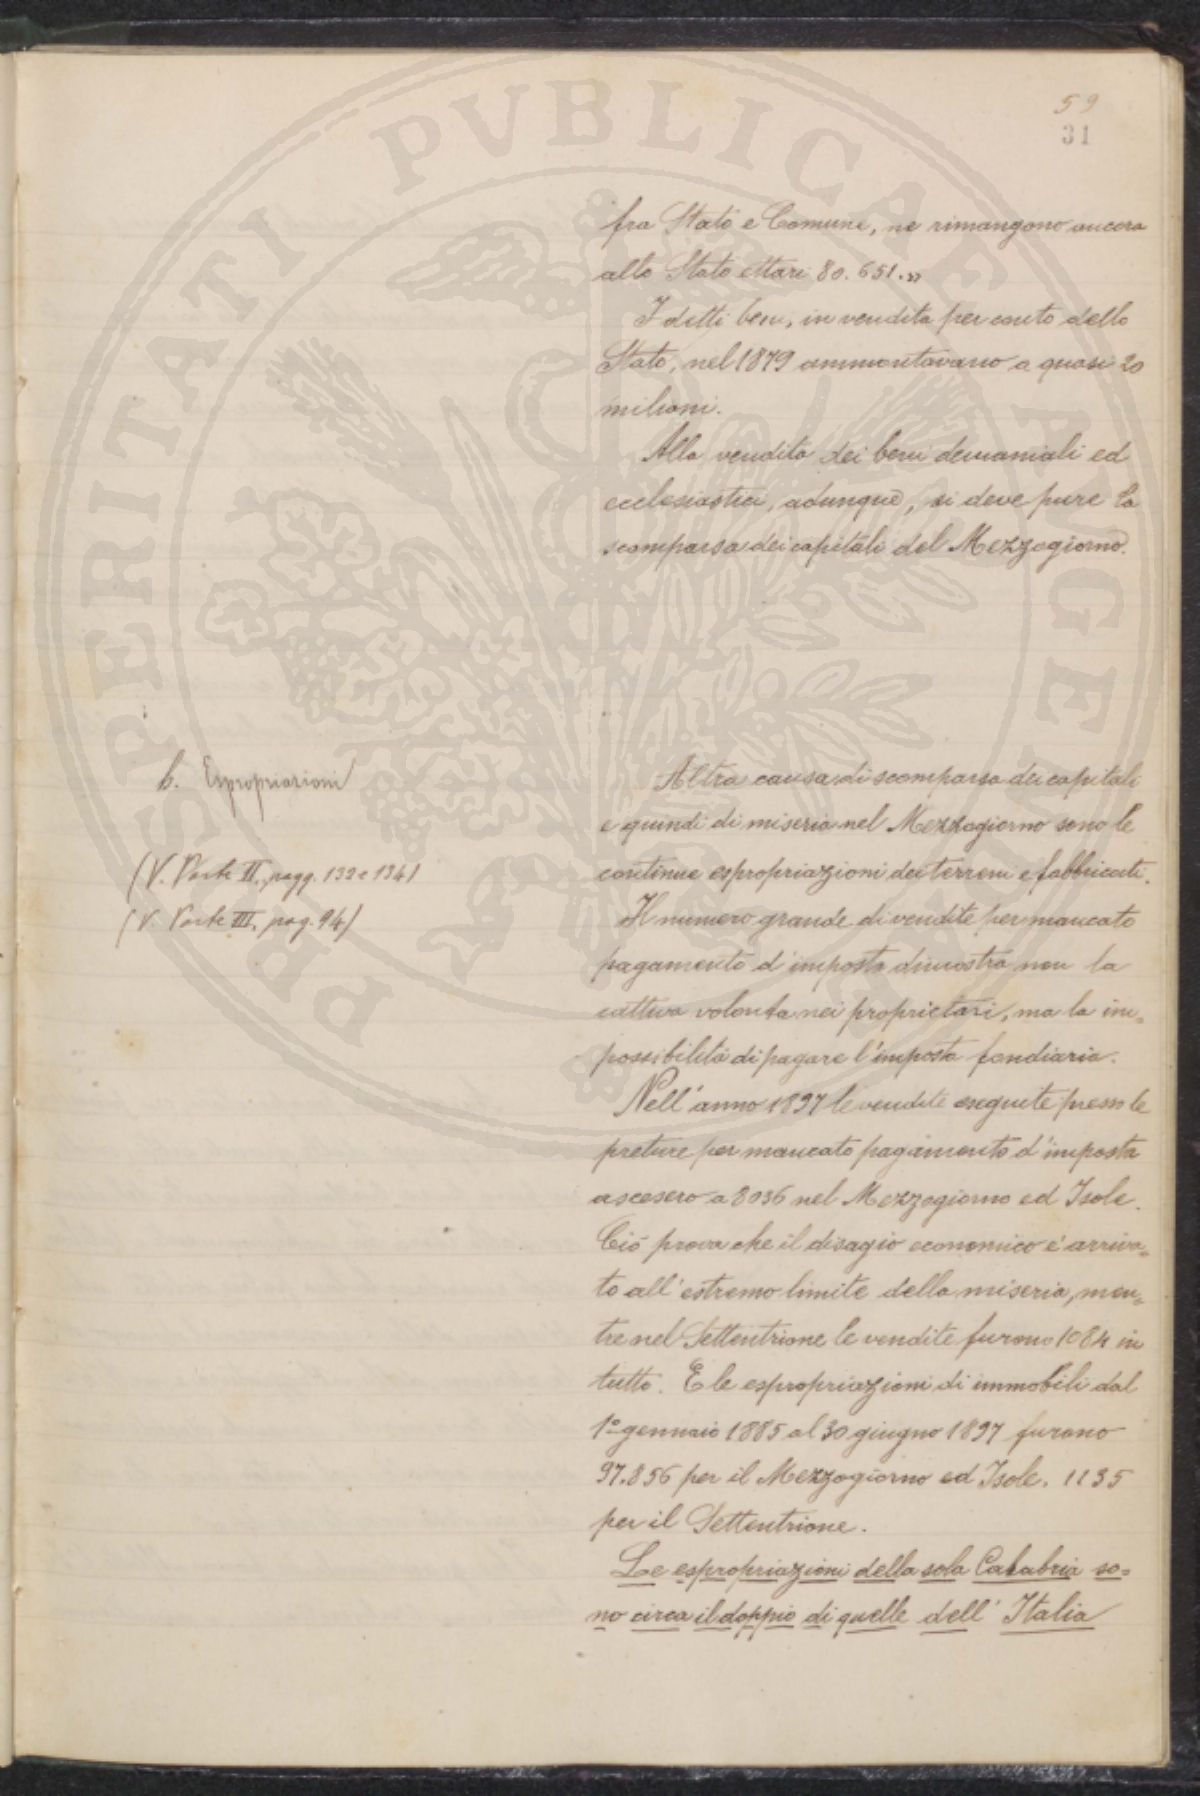 59
31
fra Stato e Comuni, ne rimangono ancora
allo Stato ettari 80.651.»
I detti beni, in vendita per conto dello
Stato, nel 1879 ammontavano a quasi 20
milioni.
Alla vendita dei beni demaniali ed
ecclesiastici, adunque, si deve pure la
scomparsa dei capitali del Mezzogiorno.
b. Espropriazioni
Altra causa di scomparsa dei capitali
e quindi di miseria nel Mezzogiorno sono le
(V. Parte II, pagg. 132 e 134)
continue espropriazioni dei terreni e fabbricati.
(V. Parte III, pag. 94)
Il numero grande di vendite per mancato
pagamento d'imposta dimostra non la
cattiva volontà nei proprietari, ma la im=
possibilità di pagare l'imposta fondiaria.
Nell'anno 1897 le vendite eseguite presso le
preture per mancato pagamento d'imposta
ascesero a 8036 nel Mezzogiorno ed Isole.
Ciò prova che il disagio economico è arriva=
to all'estremo limite della miseria, men=
tre nel Settentrione le vendite furono 1084 in
tutto. E le espropriazioni di immobili dal
1º gennaio 1885 al 30 giugno 1897 furono
97.856 per il Mezzogiorno ed Isole. 1135
per il Settentrione.
Le espropriazioni della sola Calabria so=
no circa il doppio di quelle dell'Italia
PVBLICAE
PROSPERITATI